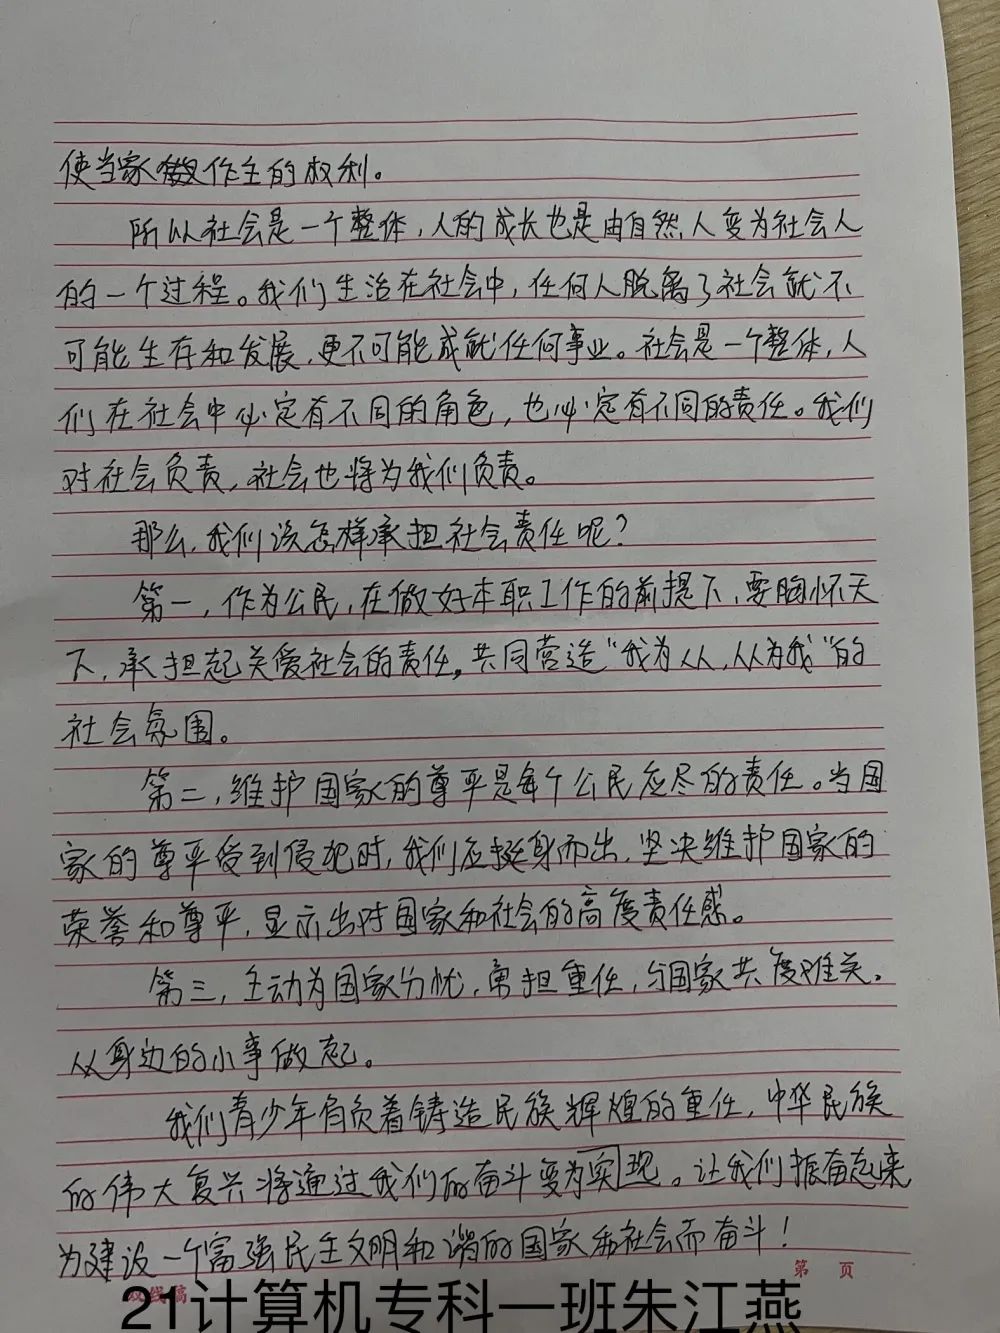 使当家做作主的权利。
所以社会是一个整体，人的成长也是由自然人变为社会人
的一个过程。我们生活在社会中，任何人脱离了社会就不
可能生存和发展，更不可能成就任何事业。社会是一个整体，人
们在社会中必定有不同的角色，也必定有不同的责任。我们
对社会负责，社会也将为我们负责。
那么，我们该怎样承担社会责任呢？
第一，作为公民，在做好本职工作的前提下，要胸怀天
下，承担起关爱社会的责任。共同营造“我为从，从为我”的
社会氛围。
第二，维护国家的尊严是每个公民应尽的责任。当国
家的尊严受到侵犯时，我们应挺身而出，坚决维护国家的
荣誉和尊严，显示出对国家和社会的高度责任感。
第三，主动为国家分忧，勇担重任，与国家共度难关。
从身边的小事做起。
我们青少年肩负着铸造民族辉煌的重任，中华民族
的伟大复兴将通过我们的奋斗变为实现。让我们振奋起来
为建设一个富强民主文明和谐的国家和社会而奋斗！
第 页
双线稿
21计算机专科一班朱江燕